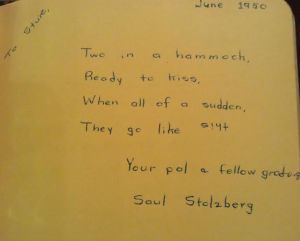 June 1950
To Stuie,
Two in a hammock,
Ready to kiss,
When all of a sudden,
They go like this
Your pal & fellow
Saul Stolzberg